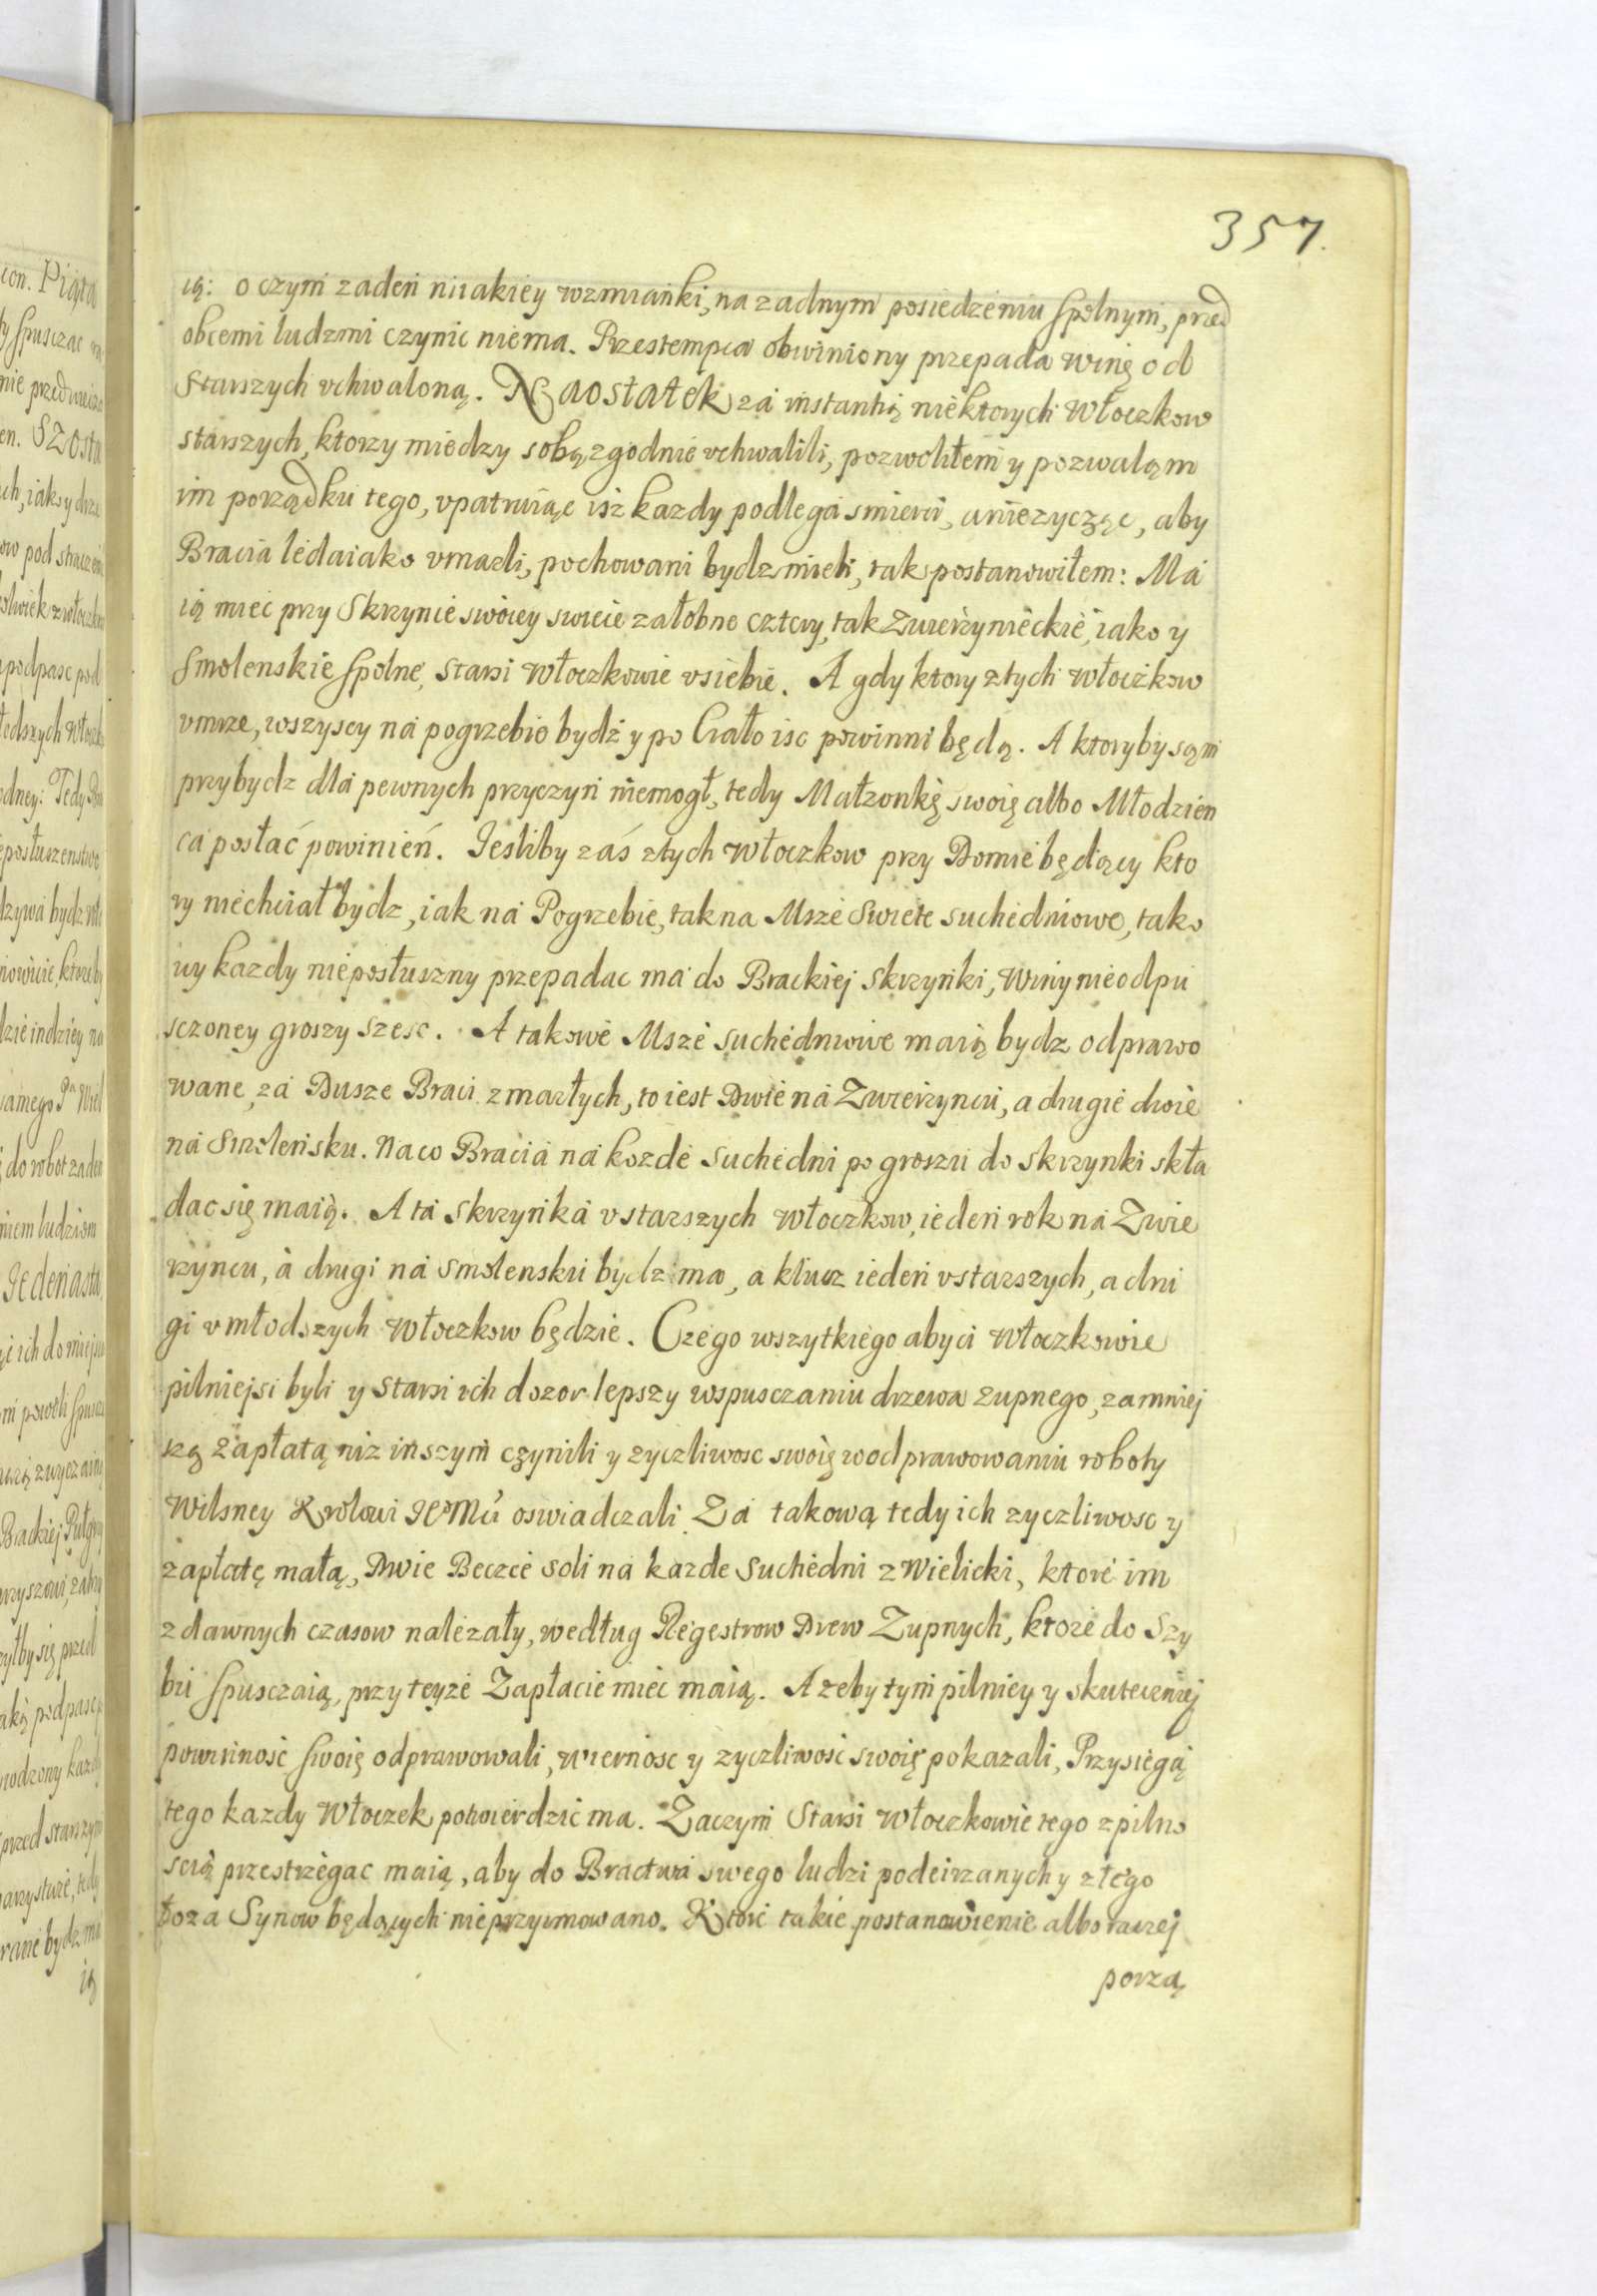 357.
ią: o czym zaden niiakiey wzmianki, na zadnym posiedzeniu spolnym, przed
obcemi ludzmi czynic niema. Przestempca obwiniony przepada winę od
Starszych vchwaloną. Naostatek za instantią niektorych Włoczkow
starszych, ktorzy miedzy sobą zgodnie vchwalili, pozwoliłem y pozwalam
im porządku tego, vpatruiąc isz kazdy podlega smierci, aniezycząc, aby
Bracia ledaiako vmarli, pochowani bydz mieli, tak postanowiłem: Ma
ią miec przy Skrzynie swoiey swiece załobne cztery, tak Zwierzynieckie, iako y
Smolenskie spolne, starsi Włoczkowie vsiebie. A gdy ktory ztych Włoczkow
vmrze, wszyscy na pogrzebie bydź y po Ciało isc powinni będą. A ktoryby sąm
przybydz dla pewnych przyczyn niemogł, tedy Małzonkę swoię albo Młodzien
ca posłać powinień. Iesliby zaś ztych Włoczkow przy Domie będący kto
ry niechciał bydz, iak na Pogrzebie, tak na Msze Swiete suchedniowe, tako
wy kazdy nieposłuszny przepadac ma do Brackiej skrzynki, winy nieodpu
sczoney groszy szesc. A takowe Msze suchedniowe maią bydz odprawo
wane, za Dusze Braci zmarłych, to iest Dwie na Zwierzyncu, a drugie dwie
na Smoleńsku. Naco Bracia na kozde suchedni po groszu do skrzynki skła
dac się maią. A ta skrzynka v starszych Włoczkow, ieden rok na Zwie
rzyncu, a drugi na Smolensku bydz ma, a klucz ieden vstarszych, a dru
gi v młodszych Włoczkow będzie. Czego wszytkiego aby ci Włoczkowie
pilniejsi byli y starsi ich dozor lepszy wspusczaniu drzewa zupnego, zamniej
szą zapłatą niz inszym czynili y zyczliwosc swoię wodprawowaniu roboty
Wilsney Krolowi Iemu oswiadczali Za takową tedy ich zyczliwosc y
zapłatę małą, Dwie Beczce soli na kazde suchedni z Wielicki, ktore im
z dawnych czasow nalezały, według Regestrow Drew Zupnych, ktore do Szy
bu spusczaią, przy teyze Zapłacie miec maią. A zeby tym pilniey y skuteczniej
powinność swoię odprawowali, wiernosc y zyczliwosc swoię pokazali, Przysięgą
tego kazdy Włoczek potwierdzic ma. Zaczym Starsi Włoczkowie tego z pilno
scią przestrzegac maią, aby do Bractwa swego ludzi podeirzanych y złego
łoza Synow będących nieprzyimowano. Ktore takie postanowienie albo raczej
porzą